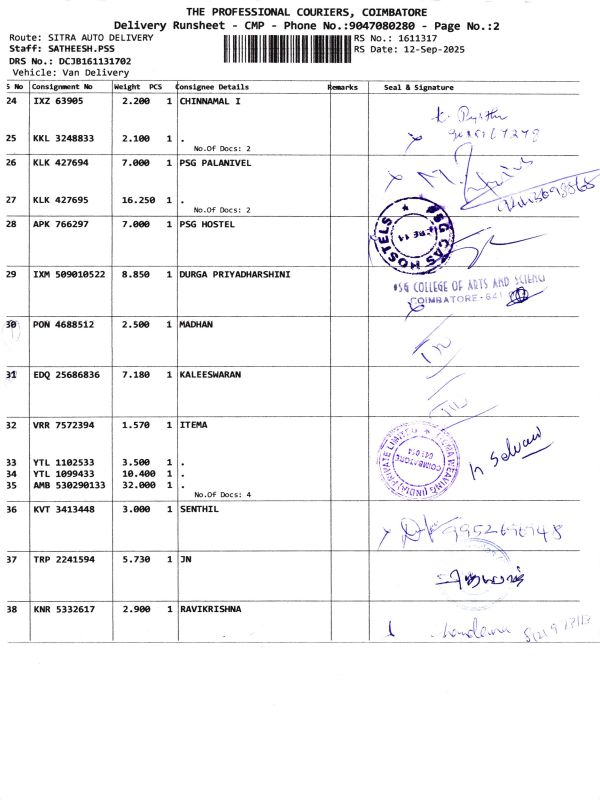 THE PROFESSIONAL COURIERS, COIMBATORE
Delivery Runsheet - CMP - Phone No.:9047080280 - Page No.:2
Route: SITRA AUTO DELIVERY RS No.: 1611317
Staff: SATHEESH.PSS RS Date: 12-Sep-2025
DRS No.: DCJB161131702
Vehicle: Van Delivery
S No Consignment No Weight PCS Consignee Details Remarks Seal & Signature
24 IXZ 63905 2.200 1 CHINNAMAL I
25 KKL 3248833 2.100 1 .
No.Of Docs: 2
26 KLK 427694 7.000 1 PSG PALANIVEL
27 KLK 427695 16.250 1 .
No.Of Docs: 2
28 APK 766297 7.000 1 PSG HOSTEL
PSG CAS HOSTELS
29 IXM 509010522 8.850 1 DURGA PRIYADHARSHINI
PSG COLLEGE OF ARTS AND SCIENC
COIMBATORE-641
30 PON 4688512 2.500 1 MADHAN
31 EDQ 25686836 7.180 1 KALEESWARAN
32 VRR 7572394 1.570 1 ITEMA
ITEMA WEAVING (INDIA) PRIVATE LIMITED
COIMBATORE
641 014
33 YTL 1102533 3.500 1 .
34 YTL 1099433 10.400 1 .
35 AMB 530290133 32.000 1 .
No.Of Docs: 4
36 KVT 3413448 3.000 1 SENTHIL
9952696948
37 TRP 2241594 5.730 1 JN
38 KNR 5332617 2.900 1 RAVIKRISHNA